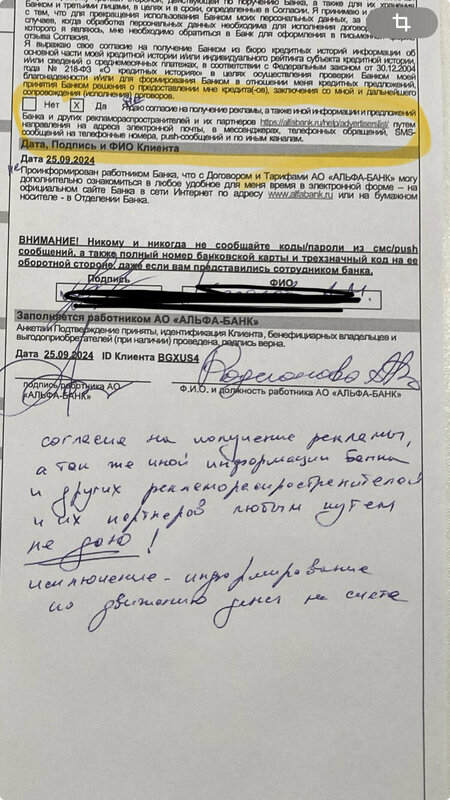 Банка и третьими лицами, в целях и в сроки, определенные в Согласии. Я принимаю и
с тем, что для прекращения использования Банком моих персональных данных, за
случаев, когда обработка персональных данных необходима для исполнения договора,
которого я являюсь, мне необходимо обратиться в Банк для оформления в письменной
отзыва Согласия.
Я выражаю свое согласие на получение Банком из бюро кредитных историй информации об
основной части моей кредитной истории и/или индивидуального рейтинга субъекта кредитной истории,
и/или сведений о среднемесячных платежах, в соответствии с Федеральным законом от 30.12.2004
года № 218-ФЗ «О кредитных историях» в целях осуществления проверки Банком моей
благонадежности и/или для формирования Банком в отношении меня кредитных предложений,
принятия Банком решения о предоставлении мне кредита(-ов), заключения со мной и дальнейшего
сопровождения (исполнения) договоров.
Нет X Да не Я даю согласие на получение рекламы, а также иной информации и предложений
Банка и других рекламораспространителей и их партнеров https://alfabank.ru/help/advertisemlist/ путем
направления на адреса электронной почты, в мессенджерах, телефонных обращений, SMS-
сообщений на телефонные номера, push-сообщений и по иным каналам.
Дата, Подпись и ФИО Клиента
Дата 25.09.2024
Проинформирован работником Банка, что с Договором и Тарифами АО «АЛЬФА-БАНК» могу
дополнительно ознакомиться в любое удобное для меня время в электронной форме – на
официальном сайте Банка в сети Интернет по адресу www.alfabank.ru или на бумажном
носителе - в Отделении Банка.
ВНИМАНИЕ! Никому и никогда не сообщайте коды/пароли из смс/push
сообщений, а также полный номер банковской карты и трехзначный код на ее
оборотной стороне, даже если вам представились сотрудником банка.
Подпись ФИО
Заполняется работником АО «АЛЬФА-БАНК»
Анкета и Подтверждение приняты, идентификация Клиента, бенефициарных владельцев и
выгодоприобретателей (при наличии) проведена, подпись верна.
Дата 25.09.2024 ID Клиента BGXUS4
Родионова
подпись работника АО Ф.И.О. и должность работника АО «АЛЬФА-БАНК»
«АЛЬФА-БАНК»
согласие на получение рекламы,
а так же иной информации Банка
и других рекламораспространителей
и их партнеров любым путем
не даю!
исключение - информирование
по движению денег на счете